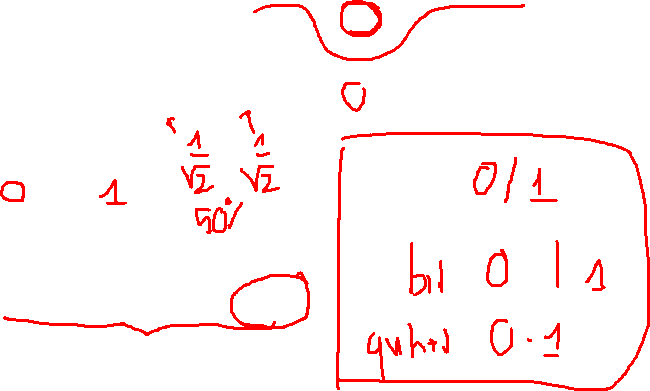 0
0 1 1/√2 1/√2
50%
0/1
bit 0 | 1
qubit 0 · 1